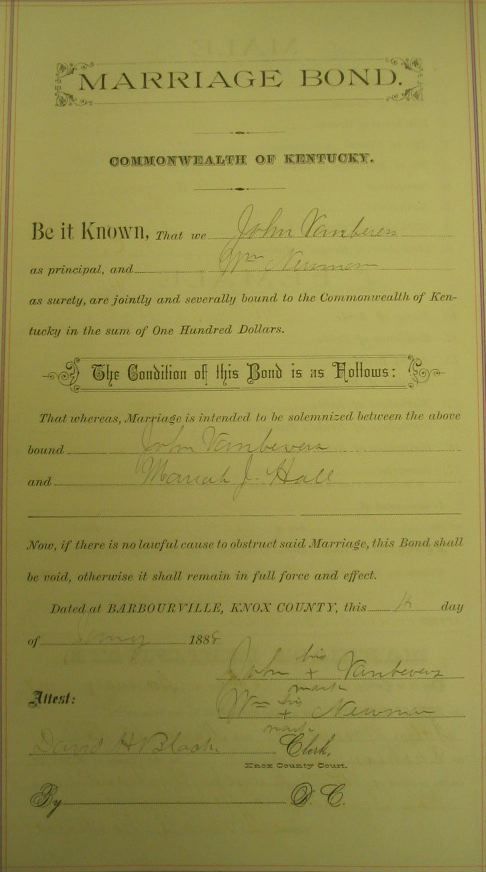 MARRIAGE BOND.
COMMONWEALTH OF KENTUCKY.
Be it Known, That we John Vanbevers
as principal, and Wm Newman
as surely, are jointly and severally bound to the Commonwealth of Ken-
tucky in the sum of One Hundred Dollars.
The Condition of this Bond is as Follows:
That whereas, Marriage is intended to be solemnized between the above
bound John Vanbevers
and Mariah J. Hall
Now, if there is no lawful cause to obstruct said Marriage, this Bond shall
be void, otherwise it shall remain in full force and effect.
Dated at BARBOURVILLE, KNOX COUNTY, this day
of 1888
John his + mark Vanbevers
Attest:
Wm his + mark Newman
David H Black Clerk,
Knox County Court.
By D. C.